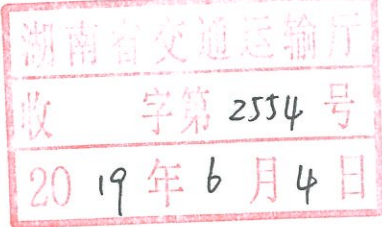 湖南省交通运输厅
收 字第 2554 号
20 19 年 6 月 4 日